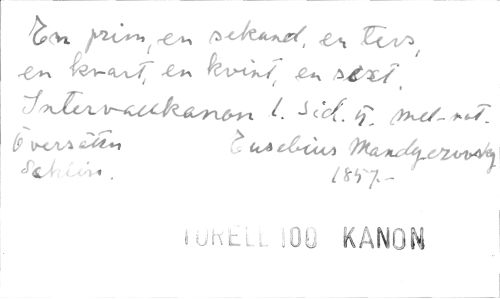 En prim, en sekund, en ters,
en kvart, en kvint, en sext.
Intervallkanon 1. sid. 4. mel-not.
Översättn Eusebius Mandyczewsky
Sahlin. 1857-
TORELL 100 KANON